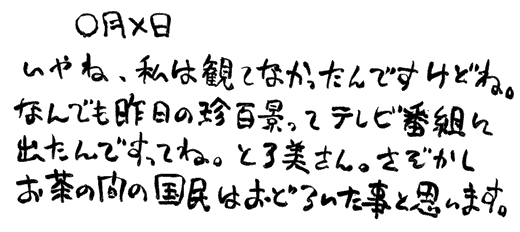 〇月×日
いやね、私は観てなかったんですけどね。
なんでも昨日の珍百景ってテレビ番組に
出たんですってね。とろ美さん。さぞかし
お茶の間の国民はおどろいた事と思います。